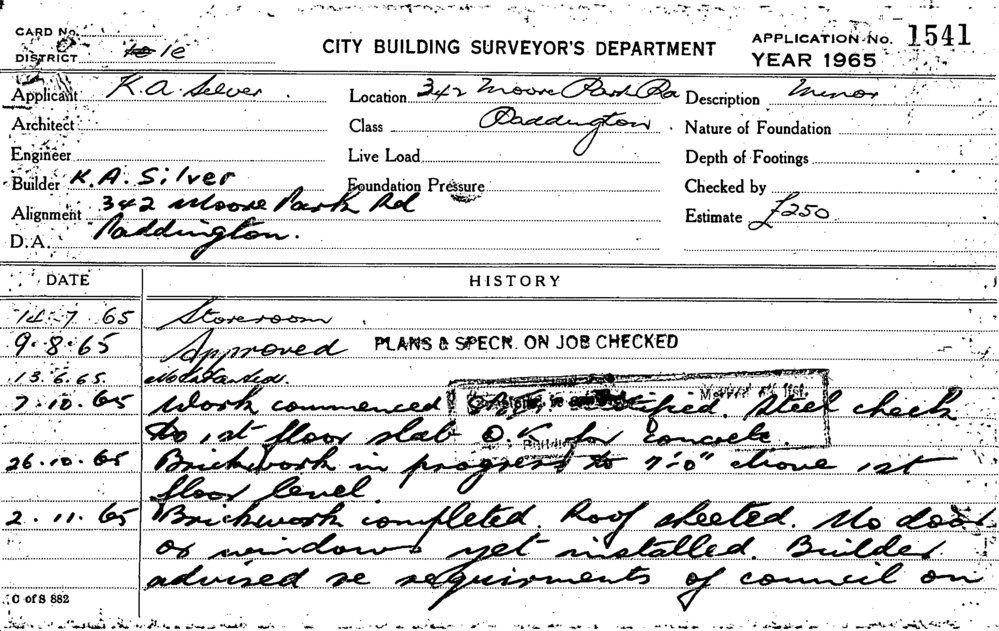 CARD No.
DISTRICT 1e
CITY BUILDING SURVEYOR'S DEPARTMENT
APPLICATION No. 1541
YEAR 1965
Applicant K.A. Silver
Location 342 Moore Park Rd
Description Minor
Architect
Class Paddington
Nature of Foundation
Engineer
Live Load
Depth of Footings
Builder K.A. Silver
Foundation Pressure
Checked by
Alignment 342 Moore Park Rd
Estimate £250
D.A. Paddington.
DATE HISTORY
14.7.65 Storeroom
9.8.65 Approved PLANS & SPECN. ON JOB CHECKED
13.6.65. Not started.
7.10.65 Work commenced Steel check
to 1st floor slab O.K. for concrete.
26.10.65 Brickwork in progress to 7'-0" above 1st
floor level.
2.11.65 Brickwork completed. Roof sheeted. No door
or windows yet installed. Builder
advised re requirments of council on
C of S 882